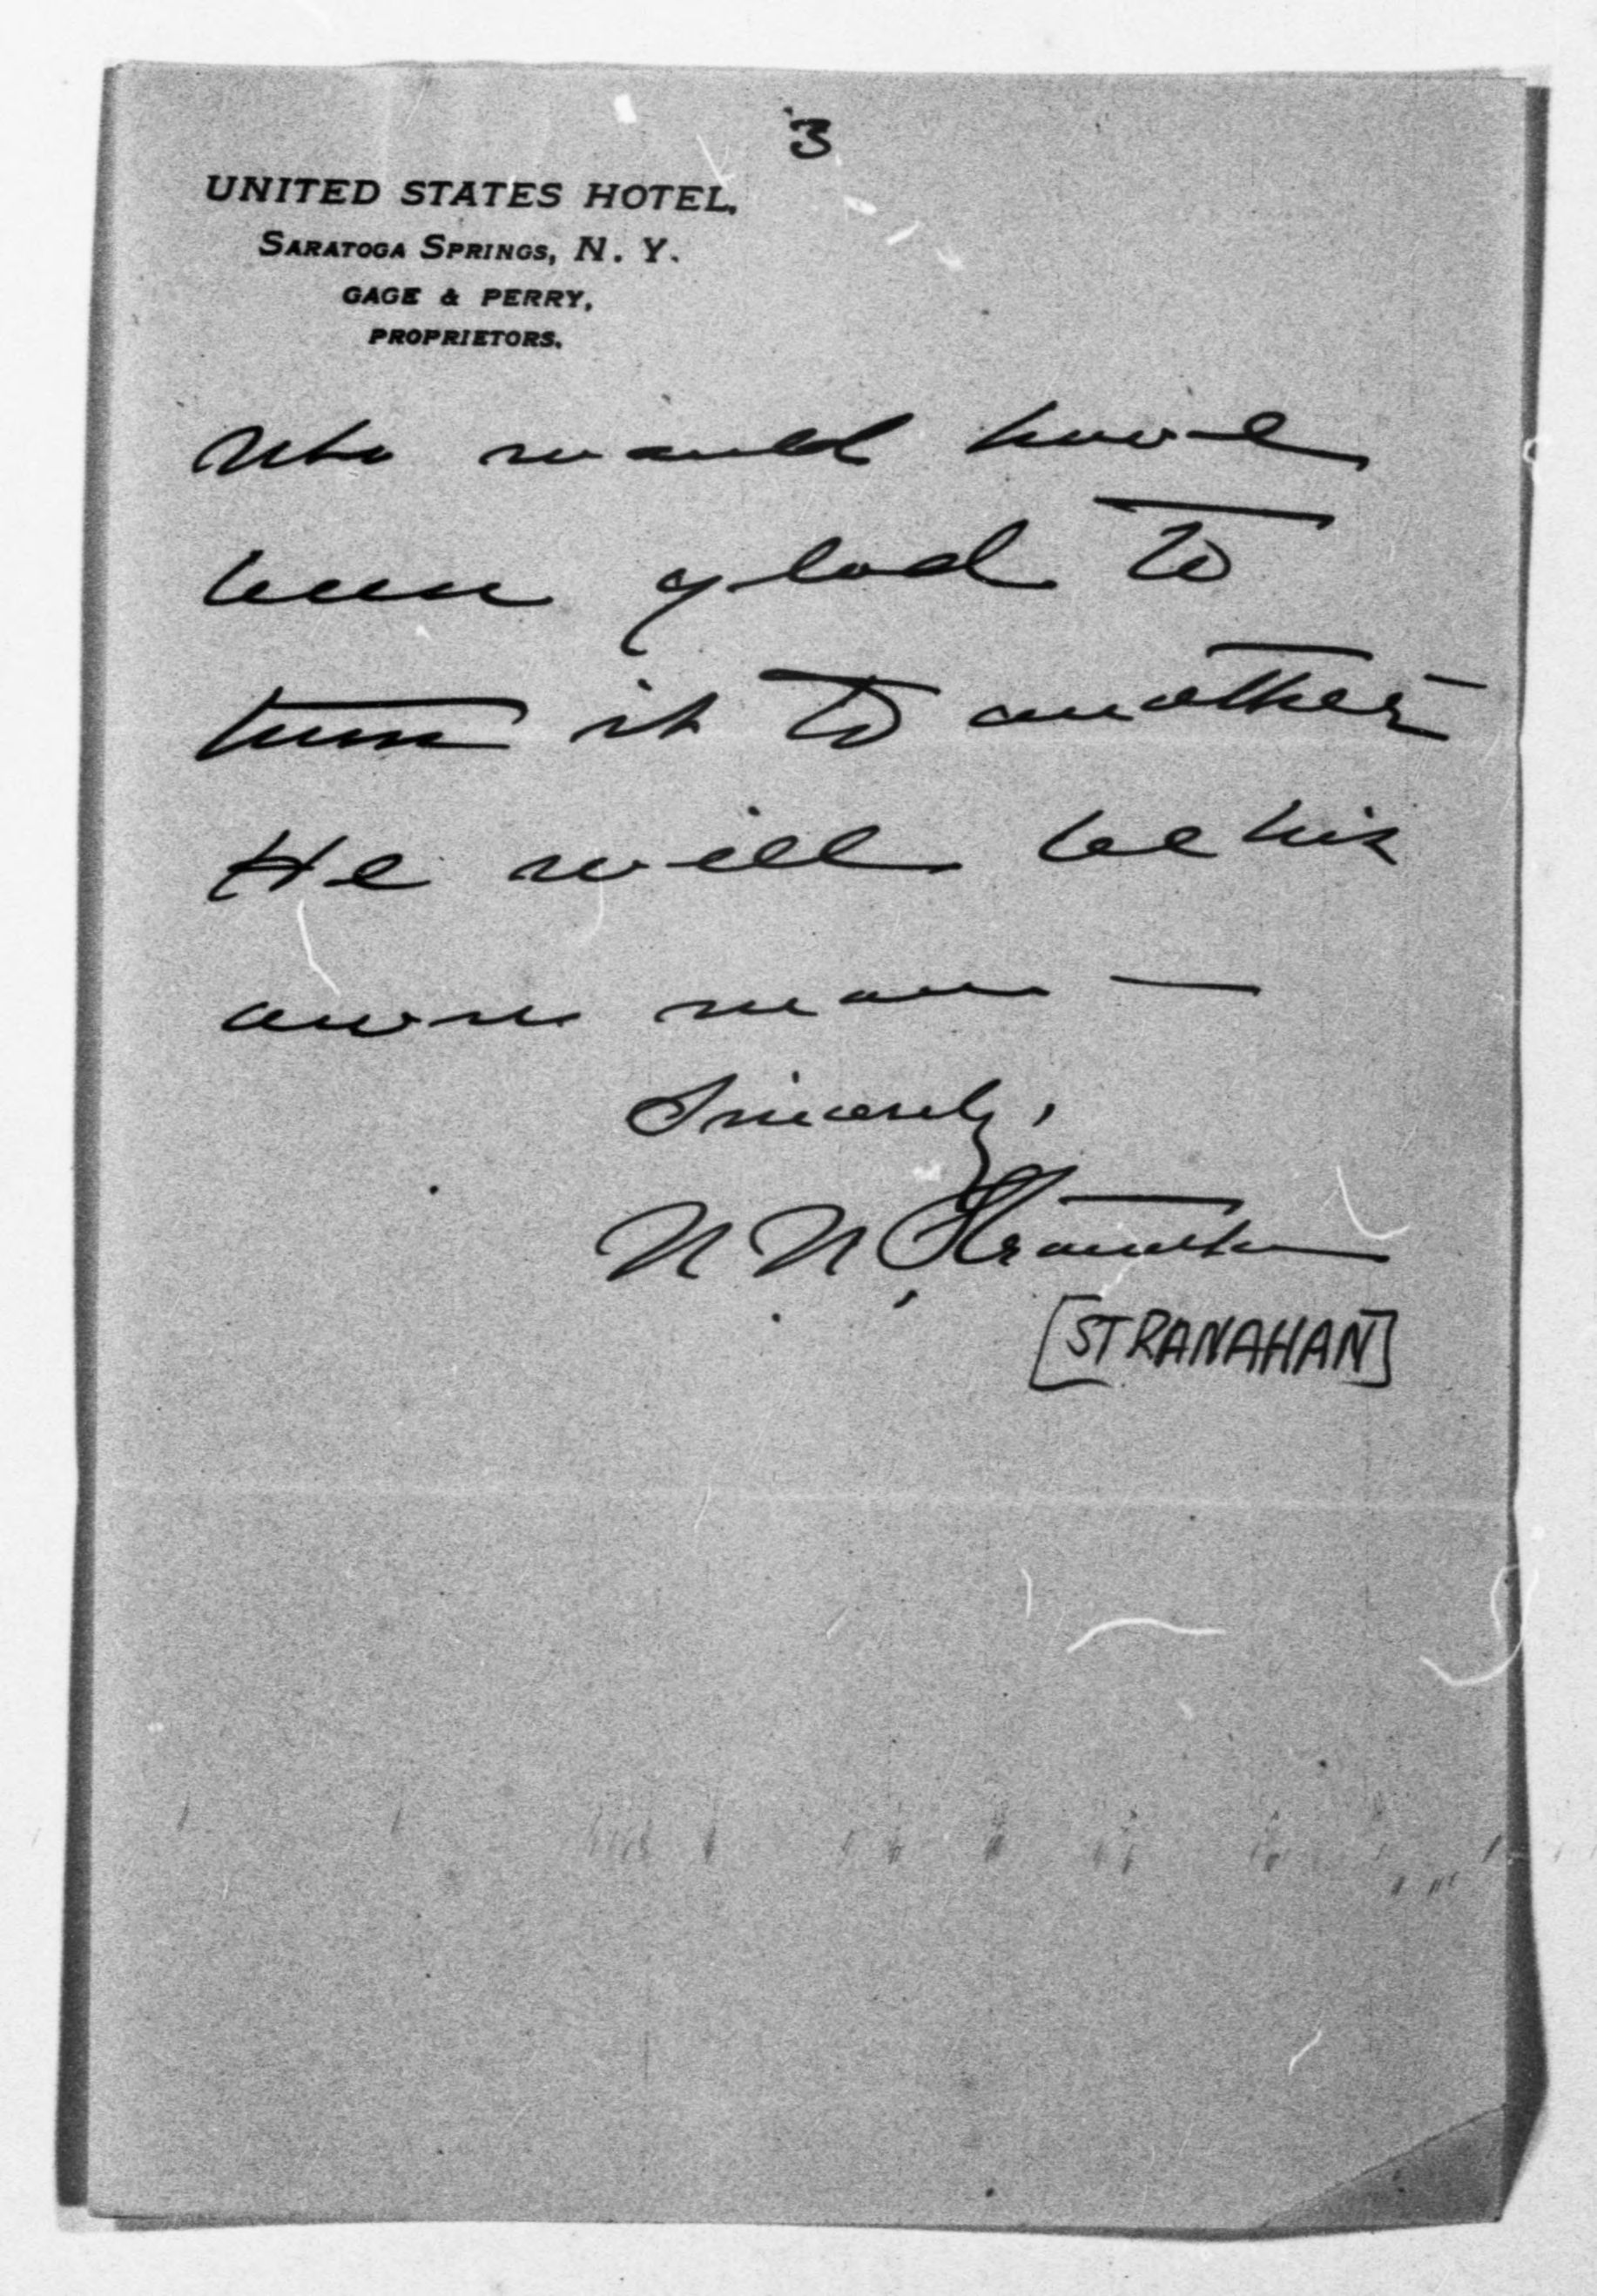 3
UNITED STATES HOTEL,
SARATOGA SPRINGS, N. Y.
GAGE & PERRY,
PROPRIETORS.
who would have
been glad to
turn it to another
He will be his
own man —
Sincerely,
N. N. Stranahan
[STRANAHAN]